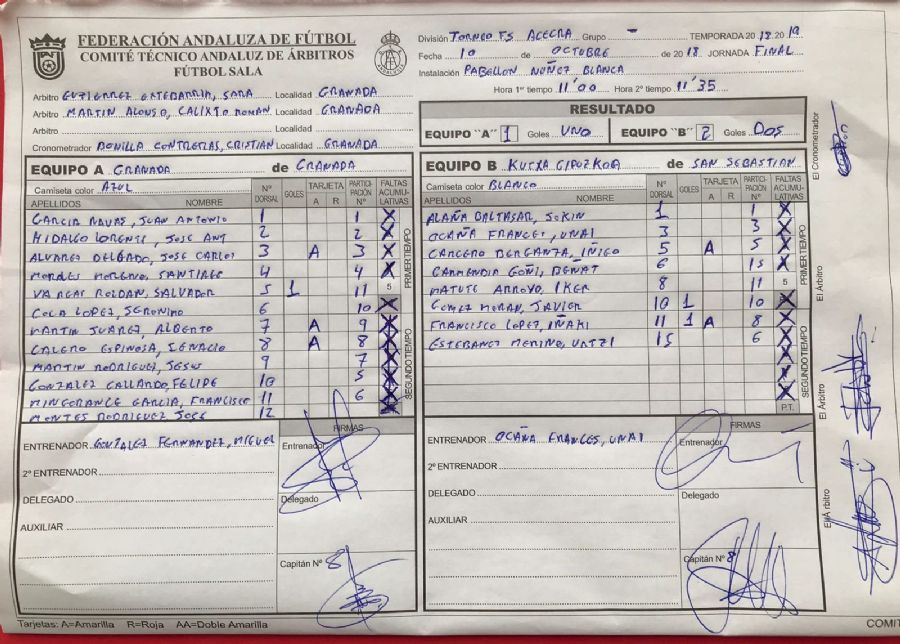 FEDERACIÓN ANDALUZA DE FÚTBOL
COMITÉ TÉCNICO ANDALUZ DE ÁRBITROS
FÚTBOL SALA
División TORNEO FS ACECRA Grupo — TEMPORADA 20 18.20 19
Fecha 10 de OCTUBRE de 20 18 JORNADA FINAL
Instalación PABELLON NUÑEZ BLANCA
Hora 1er tiempo 11'00 Hora 2º tiempo 11'35
Arbitro GUTIERREZ ESTEBARRIA, SARA Localidad GRANADA
Arbitro MARTIN ALONSO, CALIXTO ROMAN Localidad GRANADA
Arbitro Localidad
Cronometrador BONILLA CONTRERAS, CRISTIAN Localidad GRANADA
RESULTADO
EQUIPO "A" 1 Goles UNO EQUIPO "B" 2 Goles DOS
EQUIPO A GRANADA de GRANADA
Camiseta color AZUL
APELLIDOS NOMBRE Nº DORSAL GOLES TARJETA A R PARTICIPACIÓN Nº FALTAS ACUMULATIVAS
GARCIA NAVAS, JUAN ANTONIO 1 1 X
HIDALGO LORENTE, JOSE ANT 2 2 X
ALVAREZ DELGADO, JOSE CARLOS 3 A 3 X
MORALES MORENO, SANTIAGO 4 4 X
VARGAS ROLDAN, SALVADOR 5 1 11 5
COCA LOPEZ, JERONIMO 6 10 X
MARTIN JUAREZ, ALBERTO 7 A 9 X
CALERO ESPINOSA, IGNACIO 8 A 8 X
MARTIN RODRIGUEZ, JESUS 9 7 X
GONZALEZ GALLARDO, FELIPE 10 5 X
MINGORANCE GARCIA, FRANCISCO 11 6 X
MONTES RODRIGUEZ JOSE 12
PRIMER TIEMPO
SEGUNDO TIEMPO
FIRMAS
ENTRENADOR GONZALEZ FERNANDEZ, MIGUEL Entrenador
2º ENTRENADOR
DELEGADO Delegado
AUXILIAR
Capitán Nº 8
EQUIPO B KUTXA GIPUZKOA de SAN SEBASTIAN
Camiseta color BLANCO
APELLIDOS NOMBRE Nº DORSAL GOLES TARJETA A R PARTICIPACIÓN Nº FALTAS ACUMULATIVAS
ALAÑA BALTASAR, JOKIN 1 1 X
OCAÑA FRANCES, UNAI 3 3 X
CANCERO BERGANZA, IÑIGO 5 A 5 X
GARMENDIA GOÑI, BEÑAT 6 15 X
MATUTE ARROYO, IKER 8 11 5
GOMEZ MORAN, JAVIER 10 1 10 X
FRANCISCO LOPEZ, IÑAKI 11 1 A 8 X
ESTEBANEZ MERINO, URTZI 15 6 X
P.T.
PRIMER TIEMPO
SEGUNDO TIEMPO
FIRMAS
ENTRENADOR OCAÑA FRANCES, UNAI Entrenador
2º ENTRENADOR
DELEGADO Delegado
AUXILIAR
Capitán Nº 8
El Cronometrador
El Árbitro
El Árbitro
El Árbitro
Tarjetas: A=Amarilla R=Roja AA=Doble Amarilla
COMIT